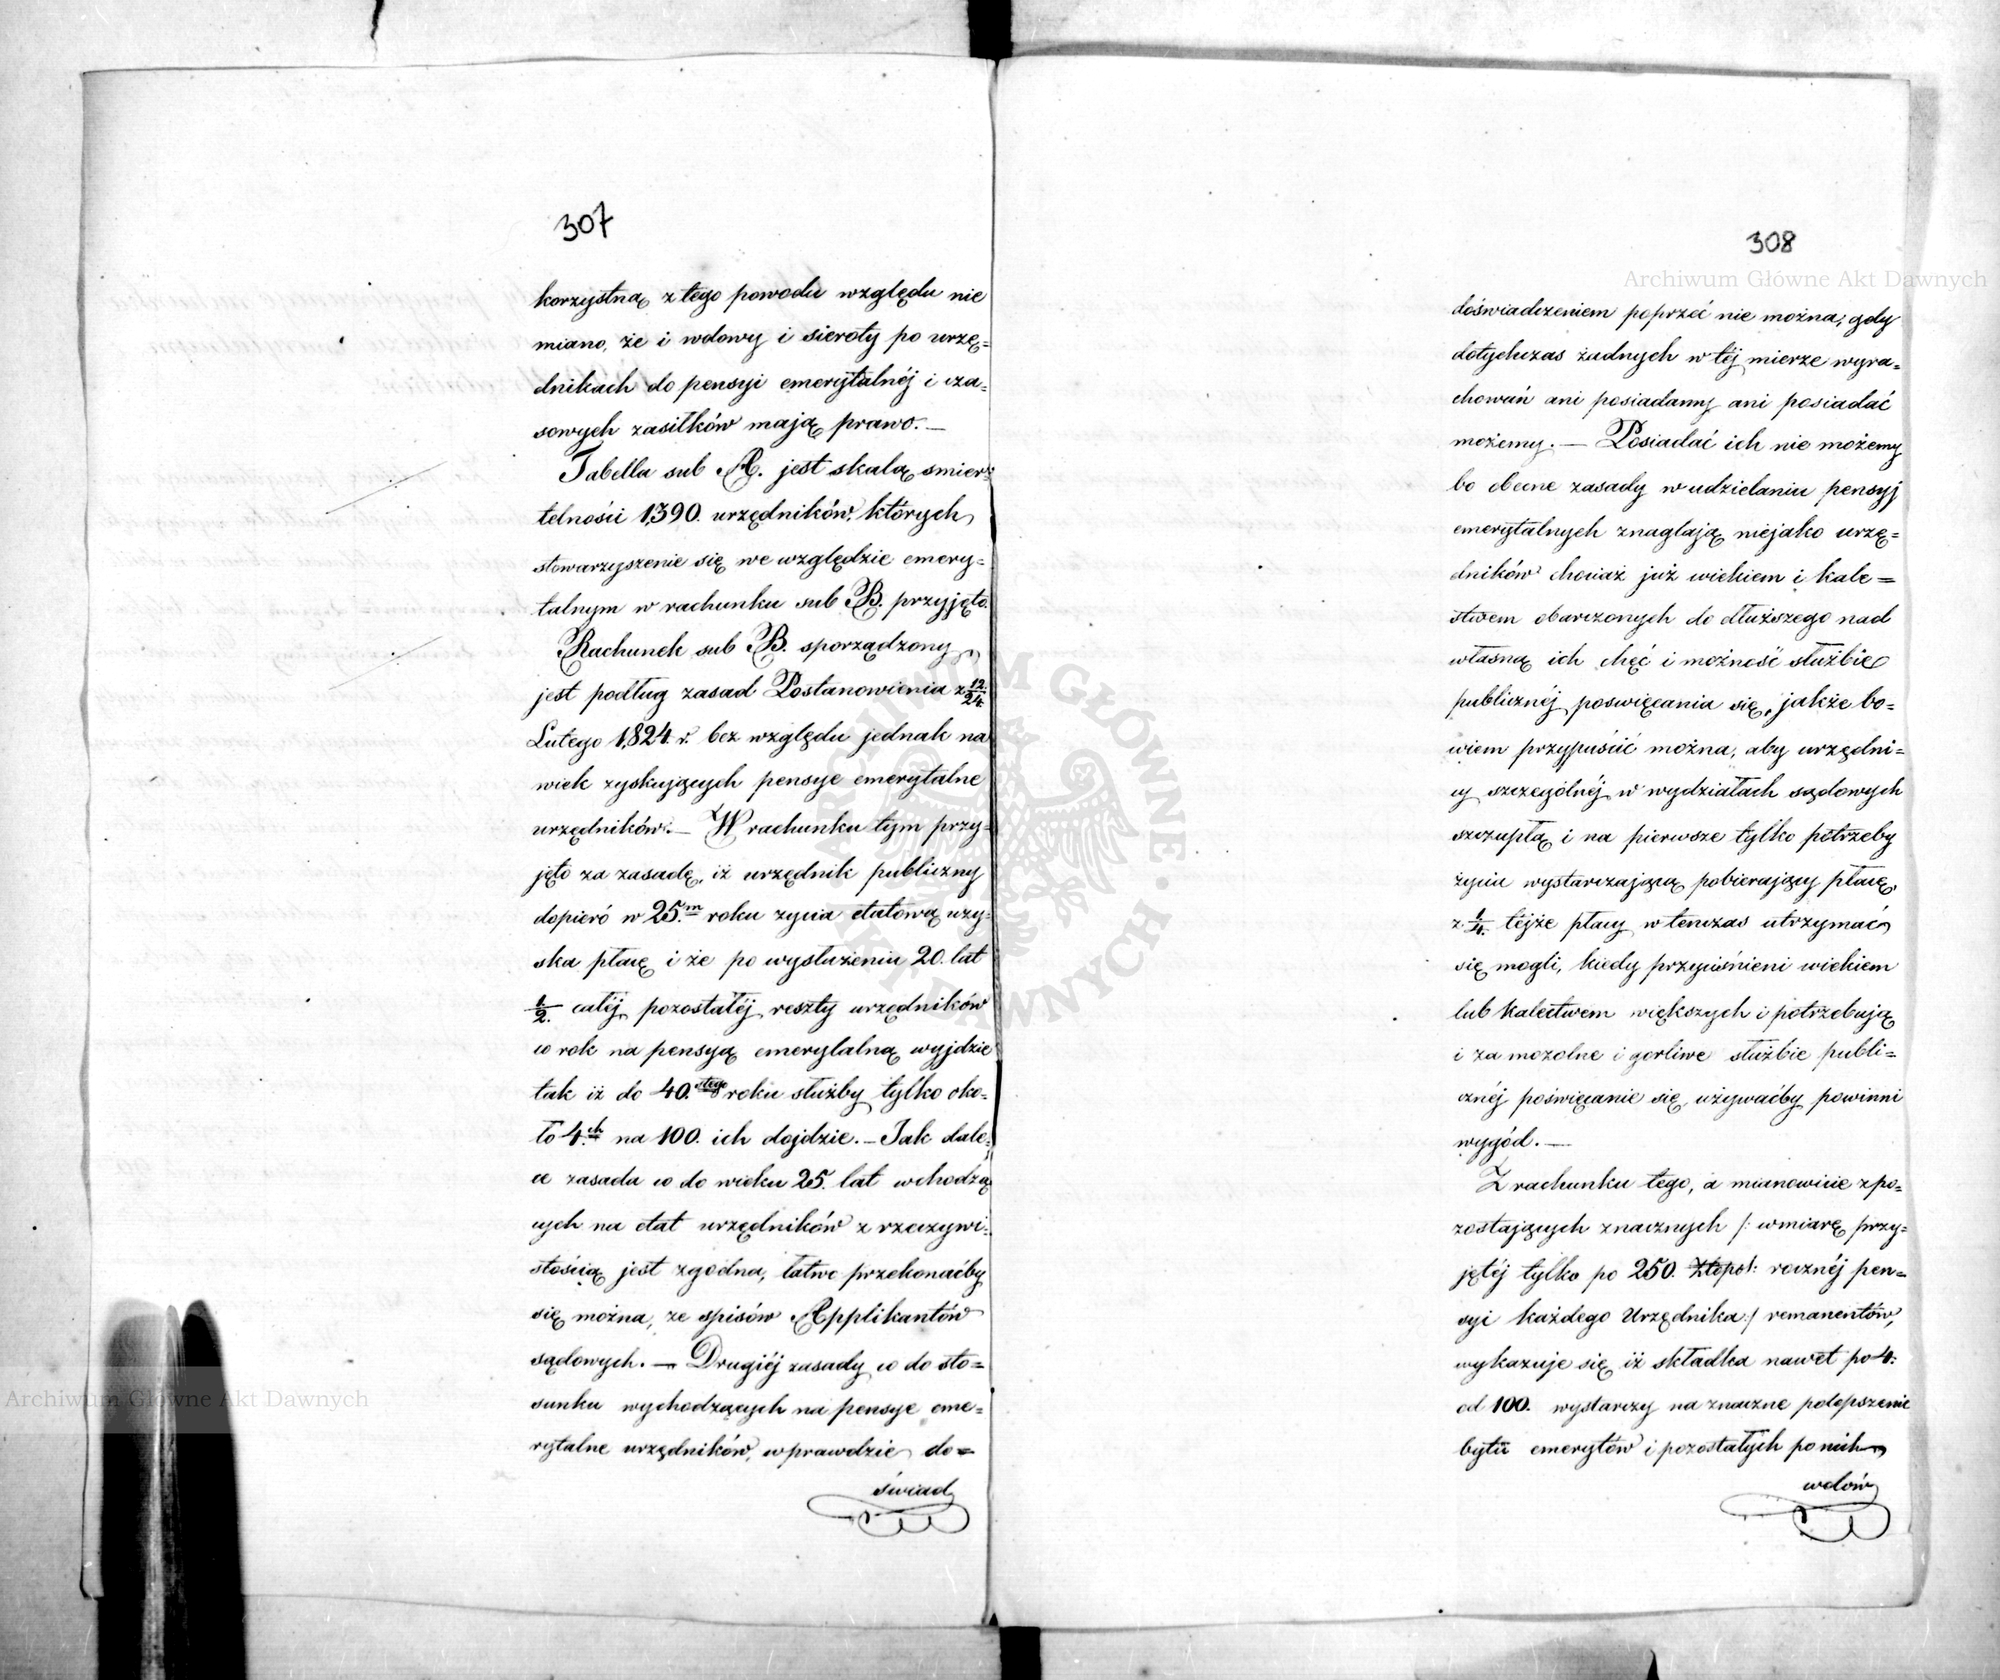 307
korzystną z tego powodu względu nie
miano, że i wdowy i sieroty po urzę=
dnikach do pensyi emerytalnéj i cza=
sowych zasiłków mają prawo. —
Tabella sub A. jest skalą smier=
telności 1,390. urzędników, których
stowarzyszenie się we względzie emery=
talnym w rachunku sub B. przyjęto.
Rachunek sub B. sporządzony
jest podług zasad Postanowienia z 12/24.
Lutego 1,824. r. bez względu jednak na
wiek zyskujących pensye emerytalne
urzędników. — W rachunku tym przy=
jęto za zasadę, iż urzędnik publiczny
dopieró w 25.m roku zycia etatową uzy=
ska płacę i że po wysłużeniu 20. lat
1/2. całéj pozostałéj reszty urzędników
co rok na pensyą emerytalną wyjdzie
tak iż do 40.stego roku służby tylko oko=
ło 4.ch na 100. ich dojdzie. — Jak dale=
ce zasada co do wieku 25. lat wchodzą
cych na etat urzędników z rzeczywi=
stością jest zgodna, łatwo przekonaćby
się można, ze spisów Applikantów
sądowych. — Drugiéj zasady co do sto=
sunku wychodzących na pensye eme=
rytalne urzędników, wprawdzie do=
świad
308
doświadczeniem poprzeć nie można, gdy
dotychczas żadnych w téj mierze wyra=
chowań ani posiadamy ani posiadać
możemy. — Posiadać ich nie możemy
bo obecne zasady w udzielaniu pensyj
emerytalnych znaglają niejako urzę=
dników chociaż już wiekiem i kale=
stwem obarczonych do dłuższego nad
własną ich chęć i możność służbie
publicznéj poswięcania się, jakże bo=
wiem przypuścić można, aby urzędni=
cy szczególnéj w wydziałach sądowych
szczupłą i na pierwsze tylko potrzeby
życia wystarczającą pobierający płacę,
z 1/4. téjże płacy wtenczas utrzymać
się mogli, kiedy przyciśnieni wiekiem
lub kalectwem większych i potrzebują
i za mozolne i gorliwe służbie publi=
cznéj poświęcanie się, używaćby powinni
wygód. —
Z rachunku tego, a mianowicie z po=
zostających znacznych /: w miarę przy=
jętéj tylko po 250. Złtpol: rocznéj pen=
syi każdego Urzędnika :/ remanentów,
wykazuje się iż składka nawet po 4:
od 100. wystarczy na znaczne polepszenie
bytu emerytów i pozostałych po nich
wdów
Archiwum Główne Akt Dawnych
Archiwum Główne Akt Dawnych
ARCHIWUM GŁÓWNE · AKT DAWNYCH ·